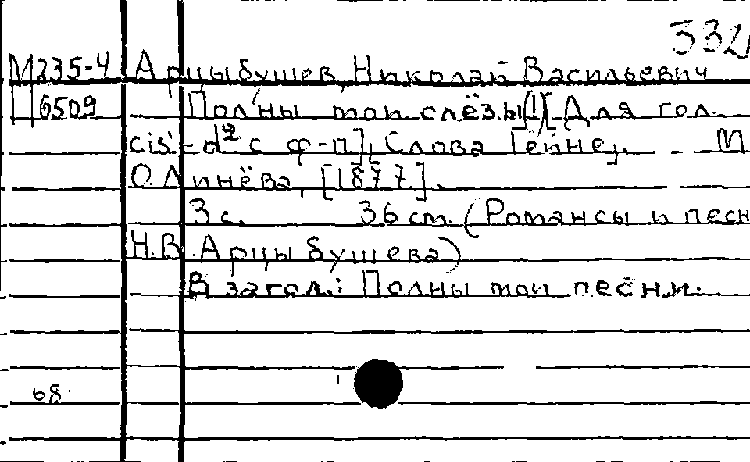 332
М235-4 Арцыбушев, Николай Васильевич
6509 Полны мои слёзы [!] [Для гол.
cis'-d² с ф-п]. Слова Гейне. М
О. Линёва, [1877].
3 с. 36 см. (Романсы и песн
Н.В. Арцыбушева)
В загол.: Полны мои песни.
68